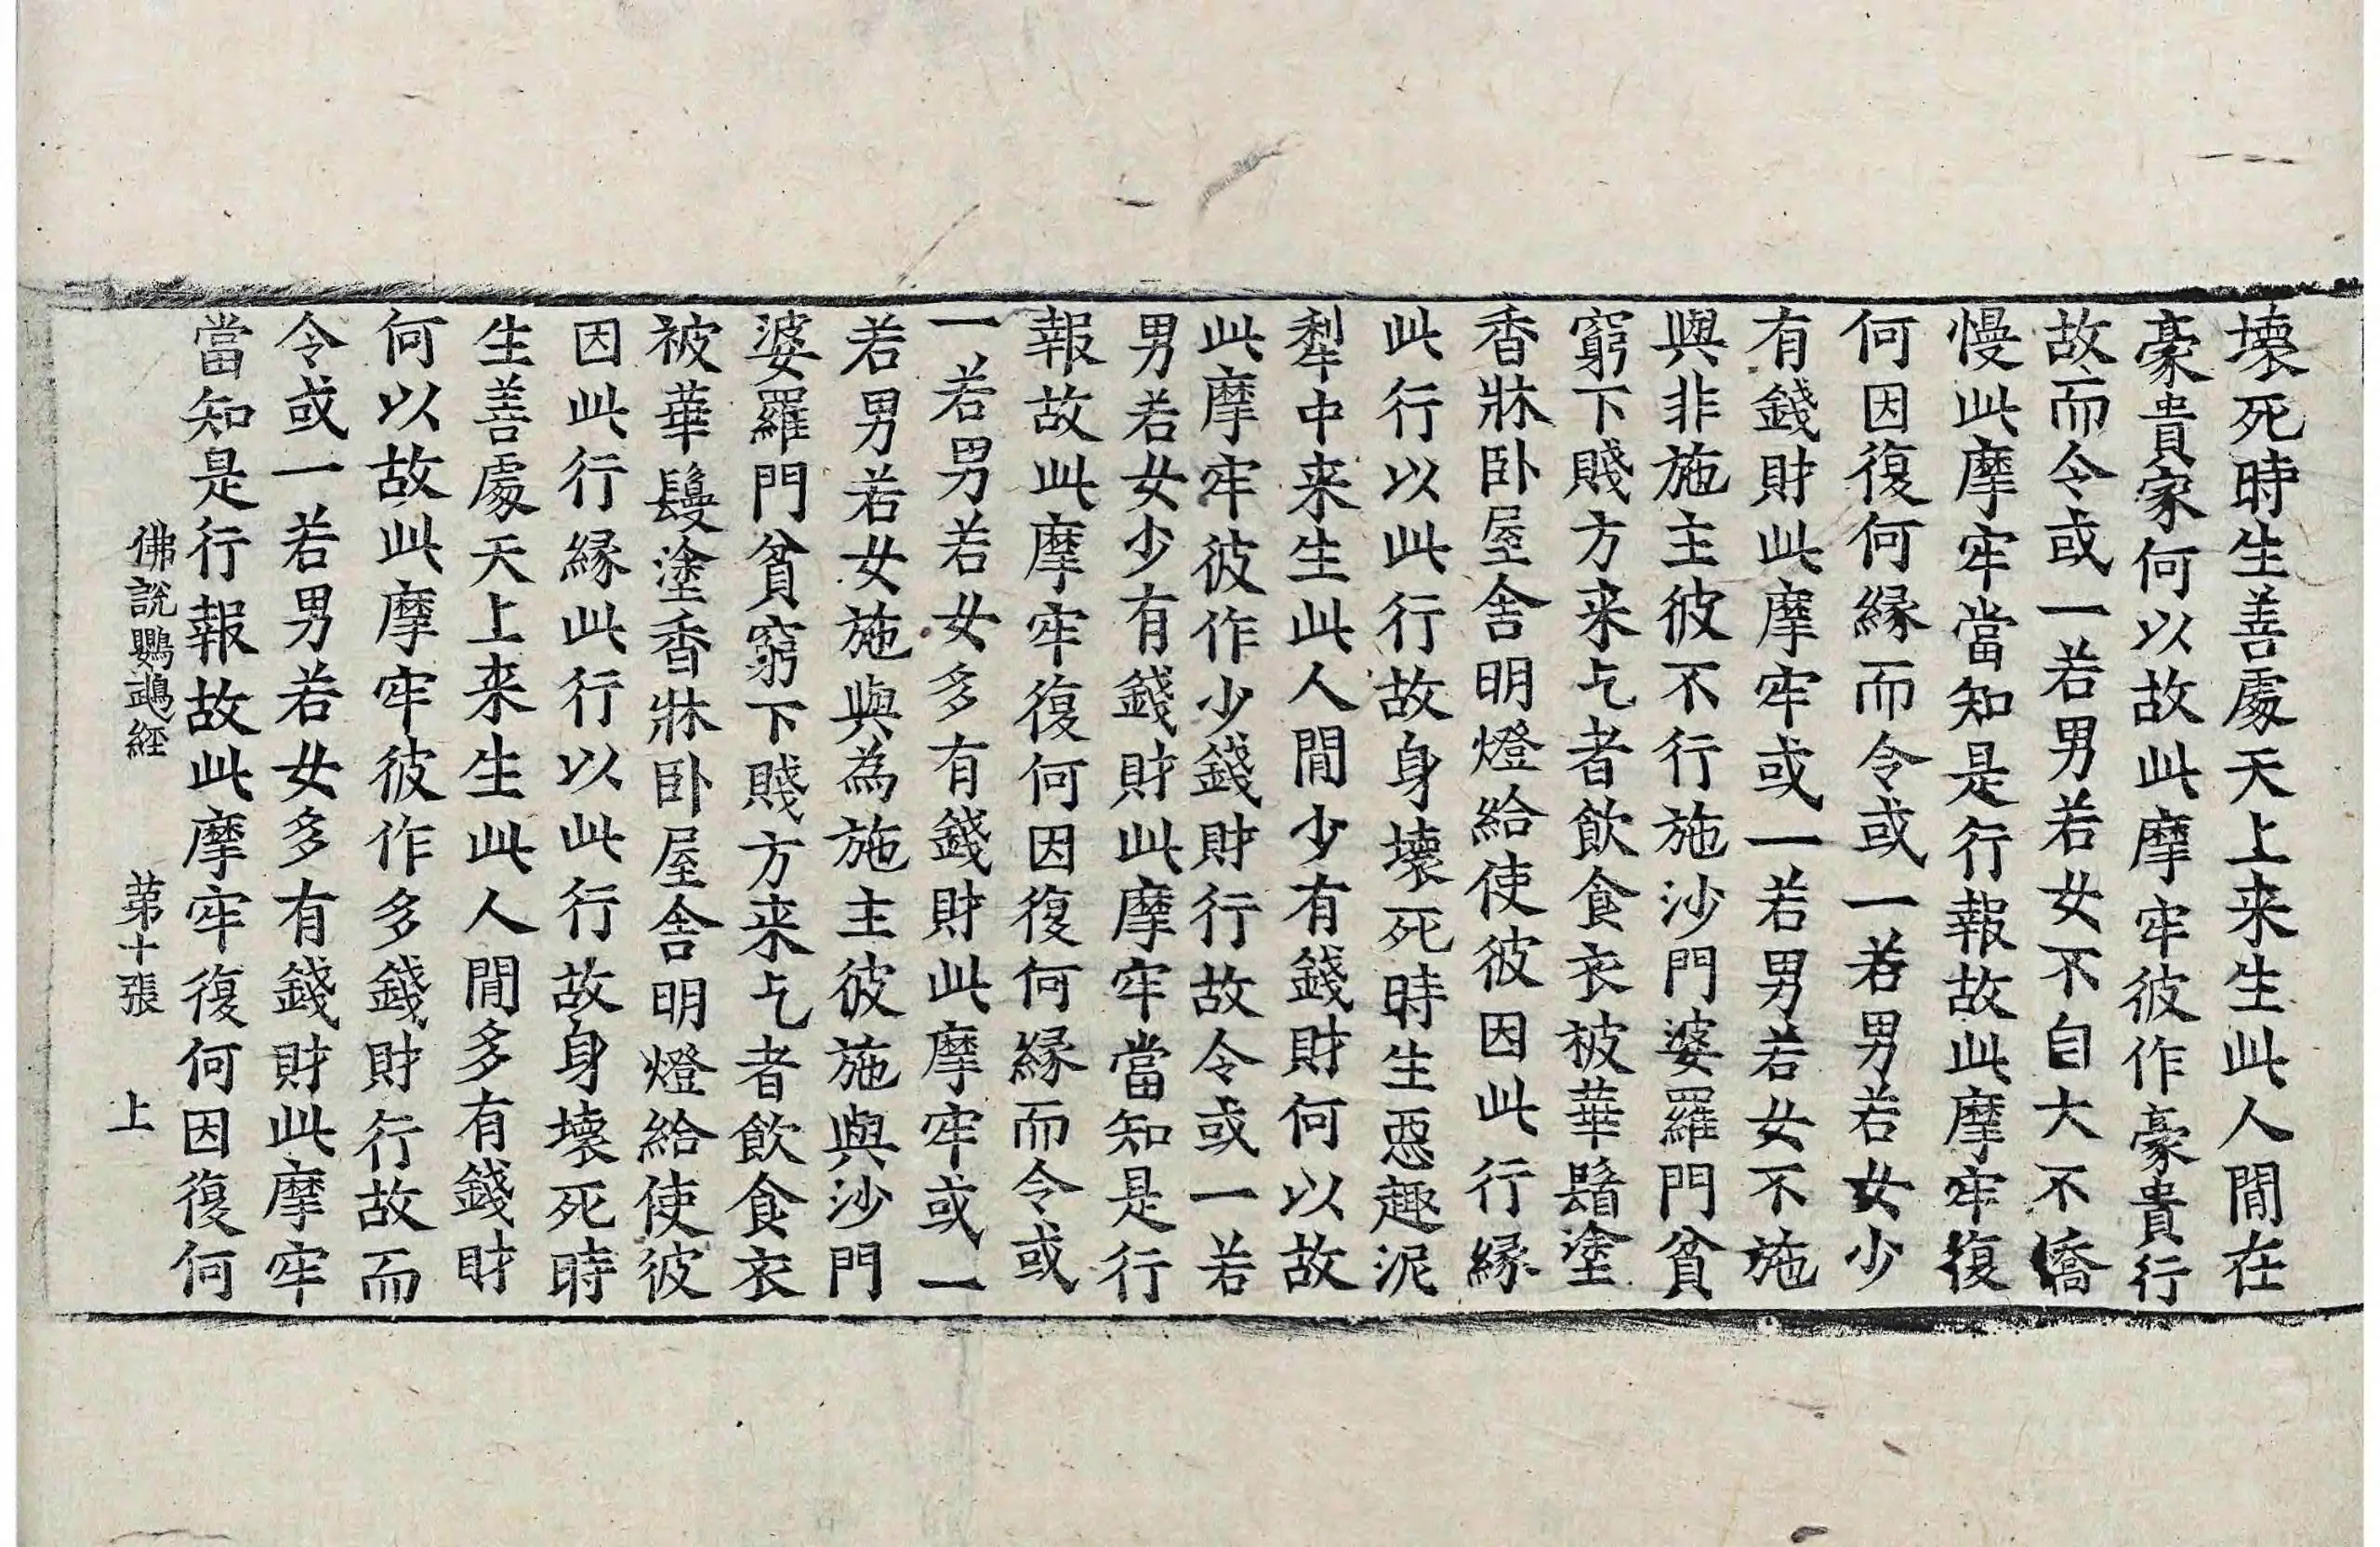 壞死時生善處天上来生此人間在
豪貴家何以故此摩牢彼作豪貴行
故而令或一若男若女不自大不憍
慢此摩牢當知是行報故此摩牢復
何因復何縁而令或一若男若女少
有錢財此摩牢或一若男若女不施
與非施主彼不行施沙門婆羅門貧
窮下賤方来乞者飲食衣被華鬘塗
香牀卧屋舍明燈給使彼因此行縁
此行以此行故身壞死時生惡趣泥
犁中来生此人間少有錢財何以故
此摩牢彼作少錢財行故令或一若
男若女少有錢財此摩牢當知是行
報故此摩牢復何因復何縁而令或
一若男若女多有錢財此摩牢或一
若男若女施與為施主彼施與沙門
婆羅門貧窮下賤方来乞者飲食衣
被華鬘塗香牀卧屋舍明燈給使彼
因此行縁此行以此行故身壞死時
生善處天上来生此人間多有錢財
何以故此摩牢彼作多錢財行故而
令或一若男若女多有錢財此摩牢
當知是行報故此摩牢復何因復何
佛說鸚鵡經 第十張 上